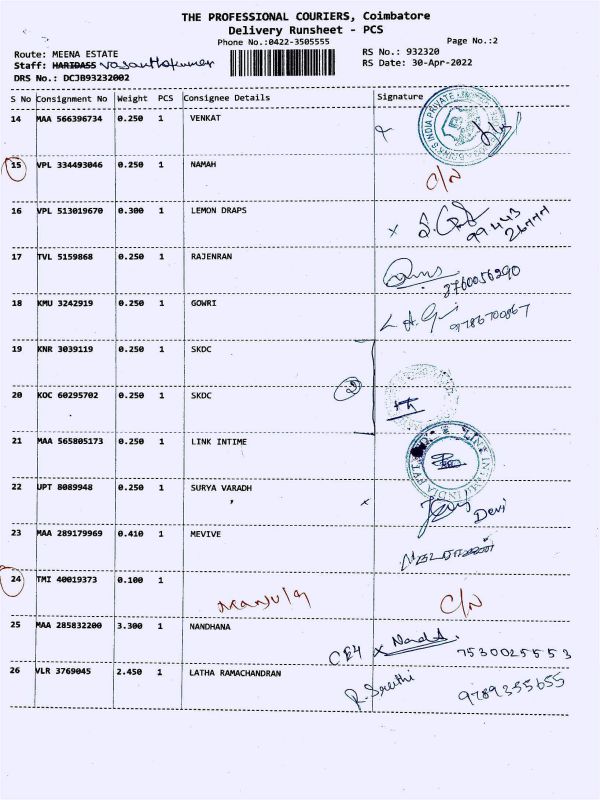 THE PROFESSIONAL COURIERS, Coimbatore
Delivery Runsheet - PCS
Phone No.:0422-3505555 Page No.:2
Route: MEENA ESTATE RS No.: 932320
Staff: HARIDASS Vasanthakumar RS Date: 30-Apr-2022
DRS No.: DCJB93232002
S No Consignment No Weight PCS Consignee Details Signature
14 MAA 566396734 0.250 1 VENKAT
15 VPL 334493046 0.250 1 NAMAH C/N
16 VPL 513019670 0.300 1 LEMON DRAPS x 99443 26777
17 TVL 5159868 0.250 1 RAJENRAN 8760056290
18 KMU 3242919 0.250 1 GOWRI 9786700867
19 KNR 3039119 0.250 1 SKDC
20 KOC 60295702 0.250 1 SKDC 2
21 MAA 565805173 0.250 1 LINK INTIME
22 UPT 8089948 0.250 1 SURYA VARADH x Devi
23 MAA 289179969 0.410 1 MEVIVE
24 TMI 40019373 0.100 1 Manjula C/N
25 MAA 285832200 3.300 1 NANDHANA x 7530025553
26 VLR 3769045 2.450 1 LATHA RAMACHANDRAN 9789355655